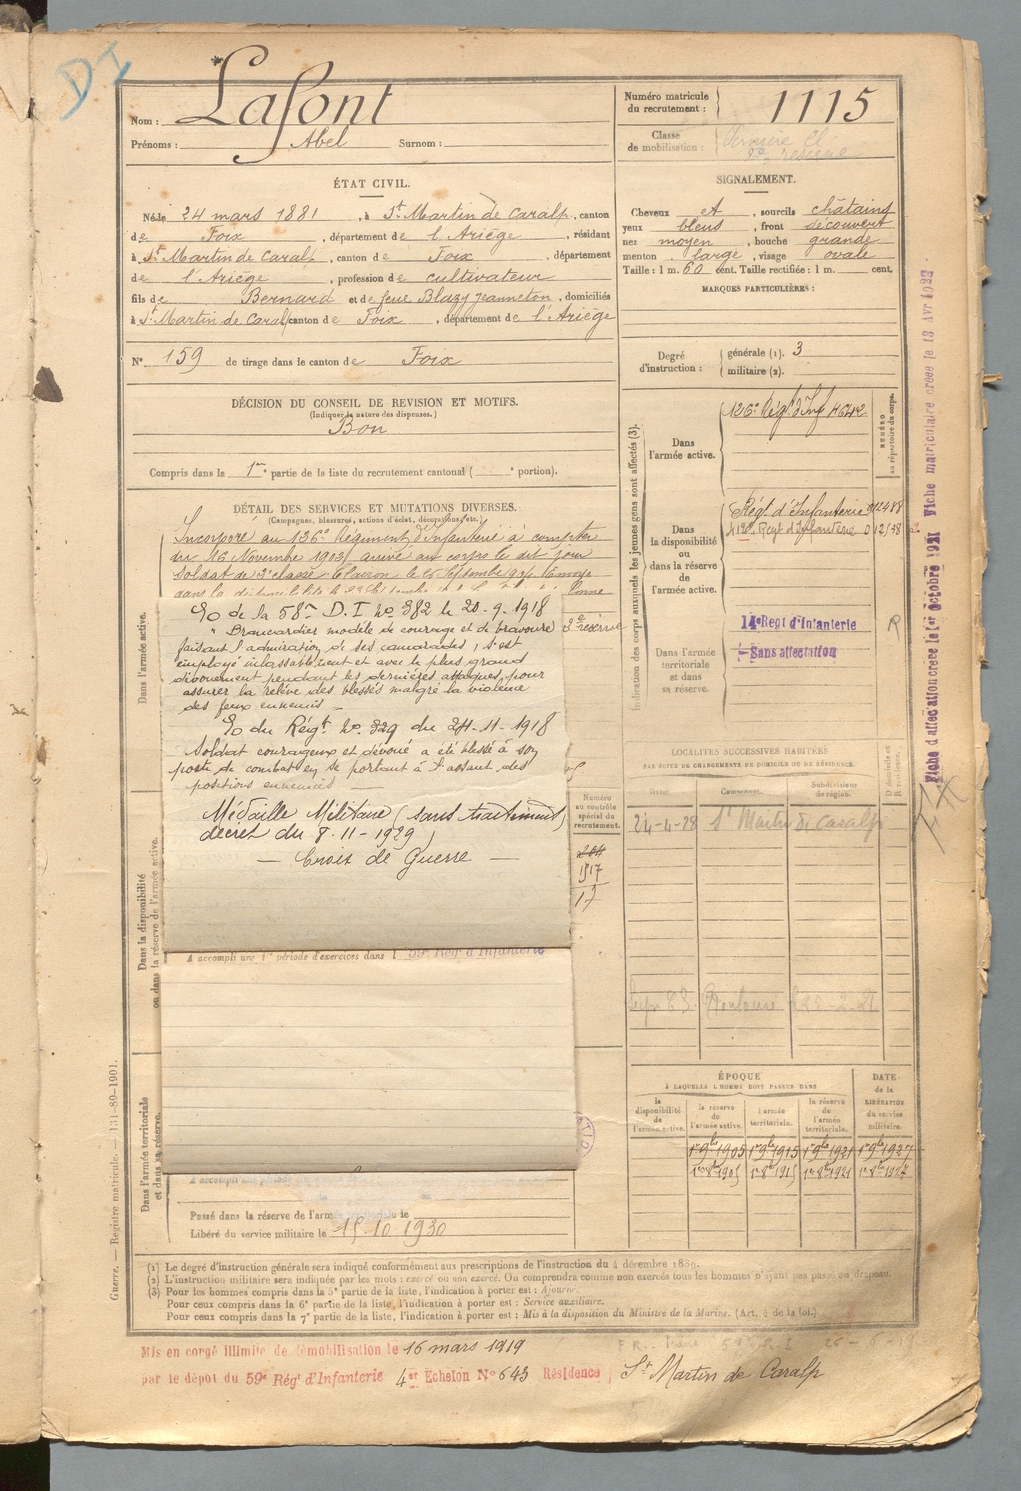 D I
Nom : Lafont
Prénoms : Abel Surnom :
Numéro matricule du recrutement : 1115
Classe de mobilisation : dernière Cl.
2e réserve
ÉTAT CIVIL.
Né le 24 mars 1881, à St Martin de Caralp, canton
de Foix, département de l'Ariège, résidant
à St Martin de Caralp, canton de Foix, département
de l'Ariège, profession de cultivateur
fils de Bernard et de feue Blazy Jeanneton, domiciliés
à St Martin de Caralp canton de Foix, département de l'Ariège
SIGNALEMENT.
Cheveux et, sourcils châtains
yeux bleus, front découvert
nez moyen, bouche grande
menton large, visage ovale
Taille : 1 m. 60 cent. Taille rectifiée : 1 m. cent.
MARQUES PARTICULIÈRES :
No 159 de tirage dans le canton de Foix
Degré d'instruction : générale (1). 3
militaire (2).
DÉCISION DU CONSEIL DE REVISION ET MOTIFS.
(Indiquer la nature des dispenses.)
Bon
Compris dans la 1re partie de la liste du recrutement cantonal ( e portion).
DÉTAIL DES SERVICES ET MUTATIONS DIVERSES.
(Campagnes, blessures, actions d'éclat, décorations, etc.)
Incorporé au 126e Régiment d'Infanterie à compter
du 16 Novembre 1902, arrivé au corps le dit jour
Soldat de 2e classe. Clairon le 26 Septembre 904 Envoyé
dans la
2e réserve
O de la 58me D. I No 382 le 20-9-1918
" Brancardier modèle de courage et de bravoure
faisant l'admiration de ses camarades, s'est
employé inlassablement et avec le plus grand
dévouement pendant les dernières attaques, pour
assurer la relève des blessés malgré la violence
des feux ennemis —
O du Régt No 329 du 24-11-1918
Soldat courageux et dévoué a été blessé à son
poste de combat en se portant à l'assaut des
positions ennemies —
Médaille Militaire (sans traitement)
décret du 8-11-1929
— Croix de Guerre —
A accompli une 1re période d'exercices dans l 59e Rég. d'Infanterie
Passé dans la réserve de l'armée territoriale le
Libéré du service militaire le 15.10.1930
Dans l'armée active.
Dans la disponibilité ou dans la réserve de l'armée active.
Dans l'armée territoriale et dans sa réserve.
Indication des corps auxquels les jeunes gens sont affectés (3).
NUMÉRO au répertoire du corps.
Dans l'armée active.
126e Régt d'Inf
Dans la disponibilité ou dans la réserve de l'armée active.
Régt d'Infanterie
Régt d'Infanterie
Dans l'armée territoriale et dans sa réserve.
14e Regt d'Infanterie
Sans affectation
R
LOCALITÉS SUCCESSIVES HABITÉES
PAR SUITE DE CHANGEMENTS DE DOMICILE OU DE RÉSIDENCE.
Dates. Communes. Subdivisions de région. Domicile et Résidence.
24-4-28 St Martin de Caralp
Numéro au contrôle spécial du recrutement.
204
1517
17
ÉPOQUE
À LAQUELLE L'HOMME DOIT PASSER DANS
la disponibilité de l'armée active. la réserve de l'armée active. l'armée territoriale. la réserve de l'armée territoriale. DATE de la LIBÉRATION du service militaire.
1er 9bre 1905 1er 9bre 1915 1er 9bre 1921 1er 9bre 1927
1er 8bre 1905 1er 8bre 1915 1er 8bre 1921 1er 8bre 1927
(1) Le degré d'instruction générale sera indiqué conformément aux prescriptions de l'instruction du 4 décembre 1889.
(2) L'instruction militaire sera indiquée par les mots : exercé ou non exercé. On comprendra comme non exercés tous les hommes n'ayant pas passé au drapeau.
(3) Pour les hommes compris dans la 5e partie de la liste, l'indication à porter est : Ajourné.
Pour ceux compris dans la 6e partie de la liste, l'indication à porter est : Service auxiliaire.
Pour ceux compris dans la 7e partie de la liste, l'indication à porter est : Mis à la disposition du Ministre de la Marine. (Art. 4 de la loi.)
Mis en congé illimité de démobilisation le 16 mars 1919
par le dépôt du 59e Rég. d'Infanterie 4er Echelon No 643 Résidence St Martin de Caralp
Guerre. — Registre matricule. — 131-89-1901.
Fiche d'affectation créée le 1er Octobre 1921 Fiche matriculaire créée le 13 Avr 1922